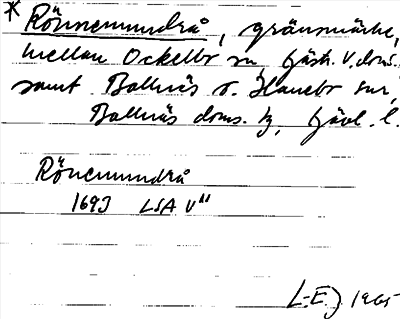 * Rönnemundrå, gränsmärke,
mellan Ockelbo sn Gästr. V. doms.
samt Bollnäs o. Hanebo snr,
Bollnäs doms. hg, Gävl. l.
Rönemundrå
1693 LSA V11
L-E. 1965